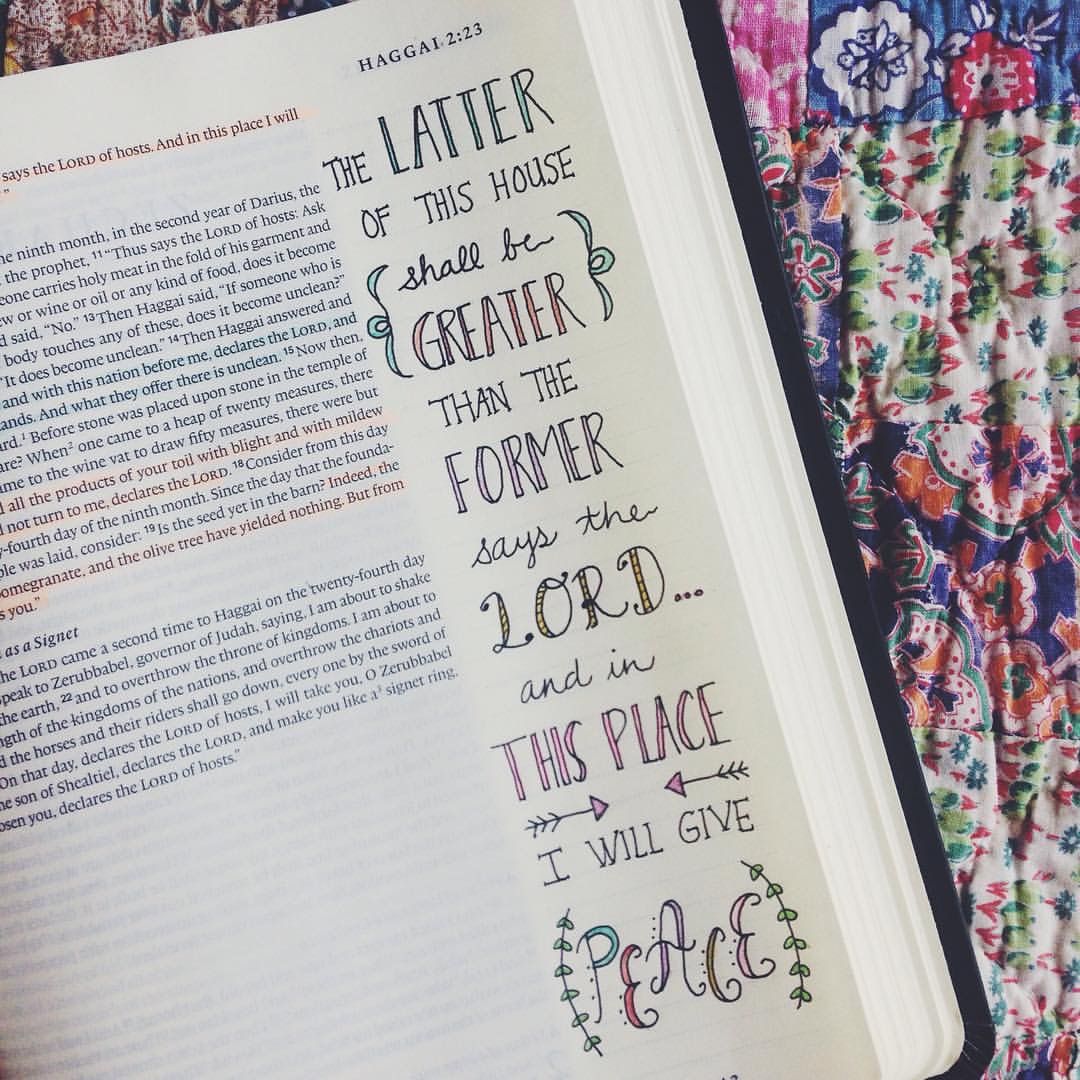 HAGGAI 2:23
says the LORD of hosts. And in this place I will
”
he ninth month, in the second year of Darius, the
the prophet, 11 “Thus says the LORD of hosts: Ask
eone carries holy meat in the fold of his garment and
ew or wine or oil or any kind of food, does it become
d said, “No.” 13 Then Haggai said, “If someone who is
body touches any of these, does it become unclean?”
“It does become unclean.” 14 Then Haggai answered and
and with this nation before me, declares the LORD, and
ands. And what they offer there is unclean. 15 Now then,
ard.1 Before stone was placed upon stone in the temple of
are? When2 one came to a heap of twenty measures, there
ame to the wine vat to draw fifty measures, there were but
d all the products of your toil with blight and with mildew
d not turn to me, declares the LORD. 18 Consider from this day
y-fourth day of the ninth month. Since the day that the founda-
ple was laid, consider: 19 Is the seed yet in the barn? Indeed, the
omegranate, and the olive tree have yielded nothing. But from
s you.”
as a Signet
he LORD came a second time to Haggai on the twenty-fourth day
peak to Zerubbabel, governor of Judah, saying, I am about to shake
the earth, 22 and to overthrow the throne of kingdoms. I am about to
ngth of the kingdoms of the nations, and overthrow the chariots and
d the horses and their riders shall go down, every one by the sword of
On that day, declares the LORD of hosts, I will take you, O Zerubbabel
he son of Shealtiel, declares the LORD, and make you like a3 signet ring,
osen you, declares the LORD of hosts.”
THE LATTER
OF THIS HOUSE
shall be
GREATER
THAN THE
FORMER
says the
LORD...
and in
THIS PLACE
I WILL GIVE
PEACE